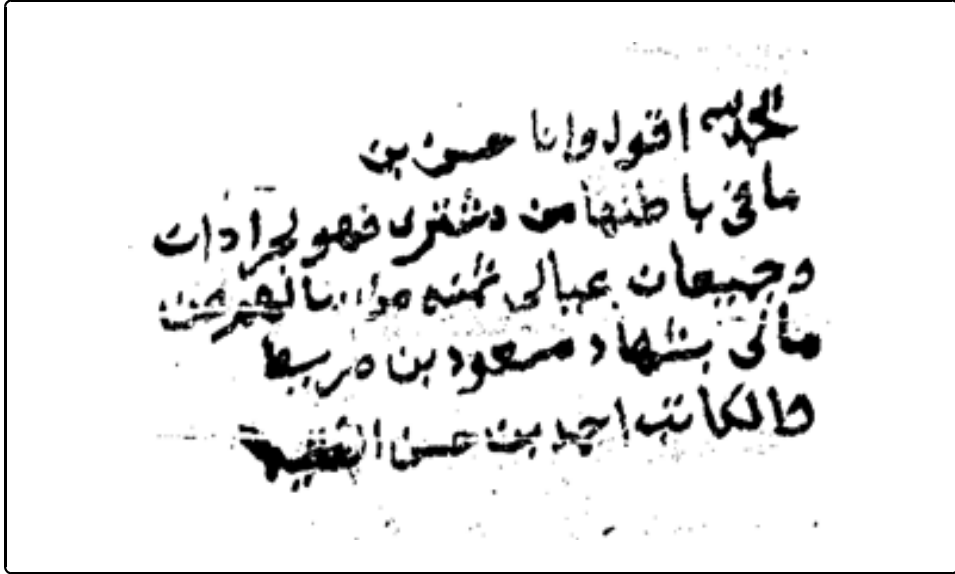 الحمد لله اقول وانا حسن بن
ما في باطنها من مشترى فهو لجرادات
وجميعان عيالي ثمنه من
مالي بشهاد مسعود بن مريط
والكاتب احمد بن حسن الفقيه